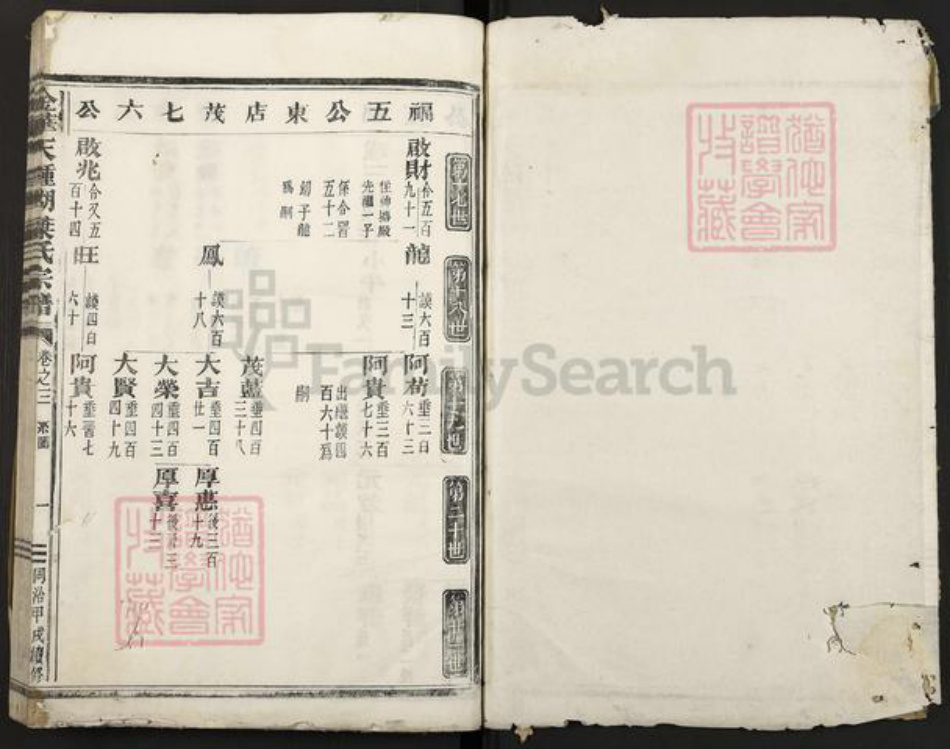 福五公東店茂七六公
第十七世
第十八世
第十九世
第二十世
啟財
行五百
九十一
龍
讓六百
十三
阿荀
垂三百
六十三
光繼一子
阿貴
垂三百
七十六
五十二
出繼讓四
百六十為
嗣
為嗣
茂藍
垂四百
三十八
鳳
讓六百
十八
大吉
垂四百
廿一
厚惠
後三百
十九
大榮
垂四百
四十三
厚喜
十三
大賢
垂四百
四十九
啟兆
百十四
旺
讓四百
六十
阿貴
十六
金華天鍾湖葉氏宗譜
卷之三
系圖
一
同治甲戌續修
猶他家譜學會收藏
猶他家譜學會收藏
FamilySearch